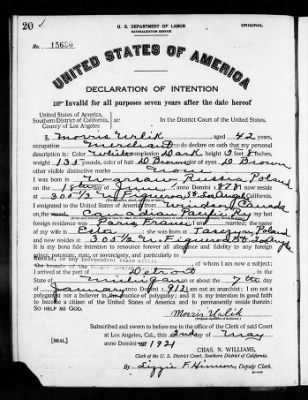 20
U. S. DEPARTMENT OF LABOR
NATURALIZATION SERVICE
ORIGINAL
No.
UNITED STATES OF AMERICA
DECLARATION OF INTENTION
Invalid for all purposes seven years after the date hereof
United States of America,
Southern District of California,
County of Los Angeles
In the District Court of the United States.
I, Morris Urlik, aged 42 years,
occupation Merchant, do declare on oath that my personal
description is: Color White, complexion Dark, height 5 feet 8 inches,
weight 135 pounds, color of hair D Brown, color of eyes D Brown
other visible distinctive marks None
I was born in Warsaw Russia Poland
on the day of June, anno Domini I now reside
at 300 1/2 N Figueroa St Los Angeles
I emigrated to the United States of America from Windsor Canada
on the Canadian Pacific Ry; my last
foreign residence was; I am married; the name
of my wife is; she was born at Poland
and now resides at 300 1/2 N Figueroa St Los Angeles
It is my bona fide intention to renounce forever all allegiance and fidelity to any foreign
prince, potentate, state, or sovereignty, and particularly to
of whom I am now a subject;
I arrived at the port of Detroit, in the
State of Michigan, on or about the 7th day
of January, anno Domini 1912; I am not an anarchist; I am not a
polygamist nor a believer in the practice of polygamy; and it is my intention in good faith
to become a citizen of the United States of America and to permanently reside therein:
SO HELP ME GOD.
Morris Urlik
Subscribed and sworn to before me in the office of the Clerk of said Court
at Los Angeles, Cal., this 2nd day of May
[SEAL]
anno Domini 1921
CHAS. N. WILLIAMS,
Clerk of the U. S. District Court, Southern District of California.
By Lizzie F. Hinman, Deputy Clerk.